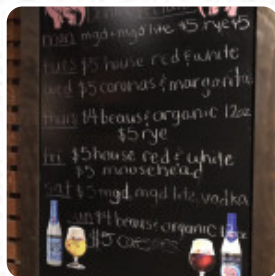 mon mgd + mgd lite $5 rye $5
tues $5 house red & white
wed $5 coronas & margarita
thurs $4 beaus organic 12oz
$5 rye
fri $5 house red & white
$5 moosehead
sat $5 mgd, mgd lite, vodka
sun $4 beaus organic 12oz
$5 caesars